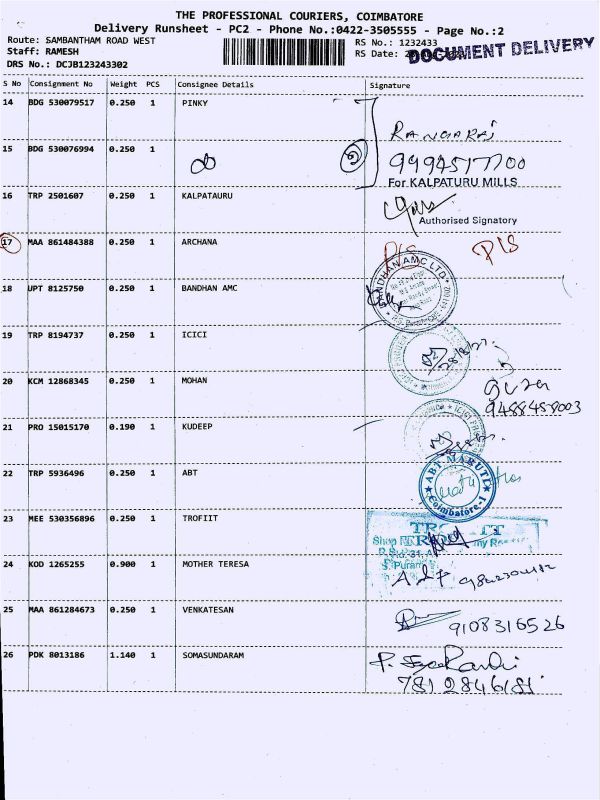 THE PROFESSIONAL COURIERS, COIMBATORE
Delivery Runsheet - PC2 - Phone No.:0422-3505555 - Page No.:2
Route: SAMBANTHAM ROAD WEST
RS No.: 1232433
Staff: RAMESH
RS Date:
DOCUMENT DELIVERY
DRS No.: DCJB123243302
S No Consignment No Weight PCS Consignee Details Signature
14 BDG 530079517 0.250 1 PINKY
RANGARAJ
15 BDG 530076994 0.250 1
9994517700
For KALPATURU MILLS
16 TRP 2501607 0.250 1 KALPATAURU
Authorised Signatory
17 MAA 861484388 0.250 1 ARCHANA
P/S P/S
BANDHAN AMC LTD
18 UPT 8125750 0.250 1 BANDHAN AMC
19 TRP 8194737 0.250 1 ICICI
20 KCM 12868345 0.250 1 MOHAN
9488458003
21 PRO 15015170 0.190 1 KUDEEP
22 TRP 5936496 0.250 1 ABT
ABT MARUTI
Coimbatore-1
23 MEE 530356896 0.250 1 TROFIIT
24 KOD 1265255 0.900 1 MOTHER TERESA
25 MAA 861284673 0.250 1 VENKATESAN
9108316526
26 PDK 8013186 1.140 1 SOMASUNDARAM
7812846181